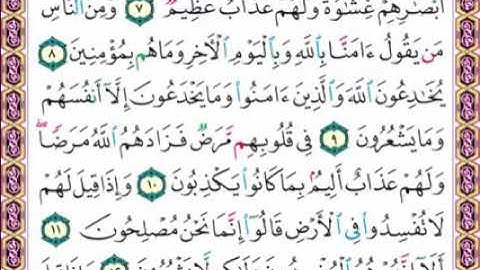 أَبْصَٰرِهِمْ غِشَٰوَةٌ وَلَهُمْ عَذَابٌ عَظِيمٌ ٧ وَمِنَ ٱلنَّاسِ
مَن يَقُولُ ءَامَنَّا بِٱللَّهِ وَبِٱلْيَوْمِ ٱلْأَخِرِ وَمَا هُم بِمُؤْمِنِينَ ٨
يُخَٰدِعُونَ ٱللَّهَ وَٱلَّذِينَ ءَامَنُوا۟ وَمَا يَخْدَعُونَ إِلَّآ أَنفُسَهُمْ
وَمَا يَشْعُرُونَ ٩ فِى قُلُوبِهِم مَّرَضٌ فَزَادَهُمُ ٱللَّهُ مَرَضًا
وَلَهُمْ عَذَابٌ أَلِيمٌۢ بِمَا كَانُوا۟ يَكْذِبُونَ ١٠ وَإِذَا قِيلَ لَهُمْ
لَا تُفْسِدُوا۟ فِى ٱلْأَرْضِ قَالُوٓا۟ إِنَّمَا نَحْنُ مُصْلِحُونَ ١١